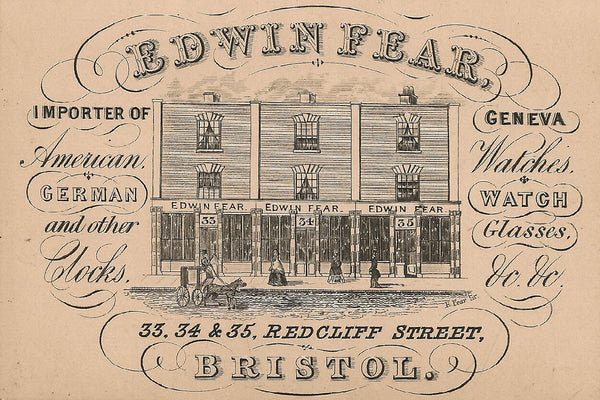 EDWIN FEAR,
IMPORTER OF
American,
GERMAN
and other
Clocks.
GENEVA
Watches.
WATCH
Glasses,
&c. &c.
EDWIN FEAR. EDWIN FEAR. EDWIN FEAR.
33 34 35
E. Fear Sc.
33. 34 & 35, REDCLIFF STREET,
BRISTOL.